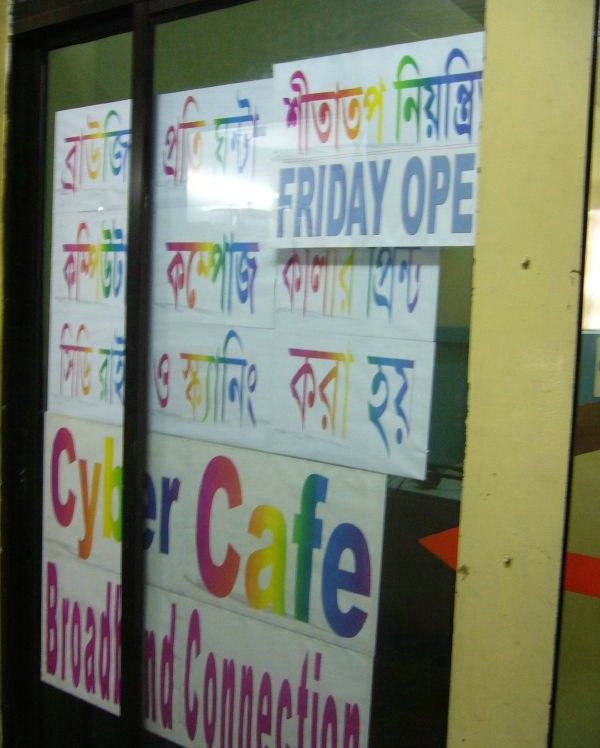 শীতাতপ নিয়ন্ত্রি
FRIDAY OPE
ব্রাউজি প্রতি ঘন্টা
কম্পিউট কম্পোজ কালার প্রিন্ট
সিডি রাই ও স্ক্যানিং করা হয়
Cyber Cafe
Broadband Connection